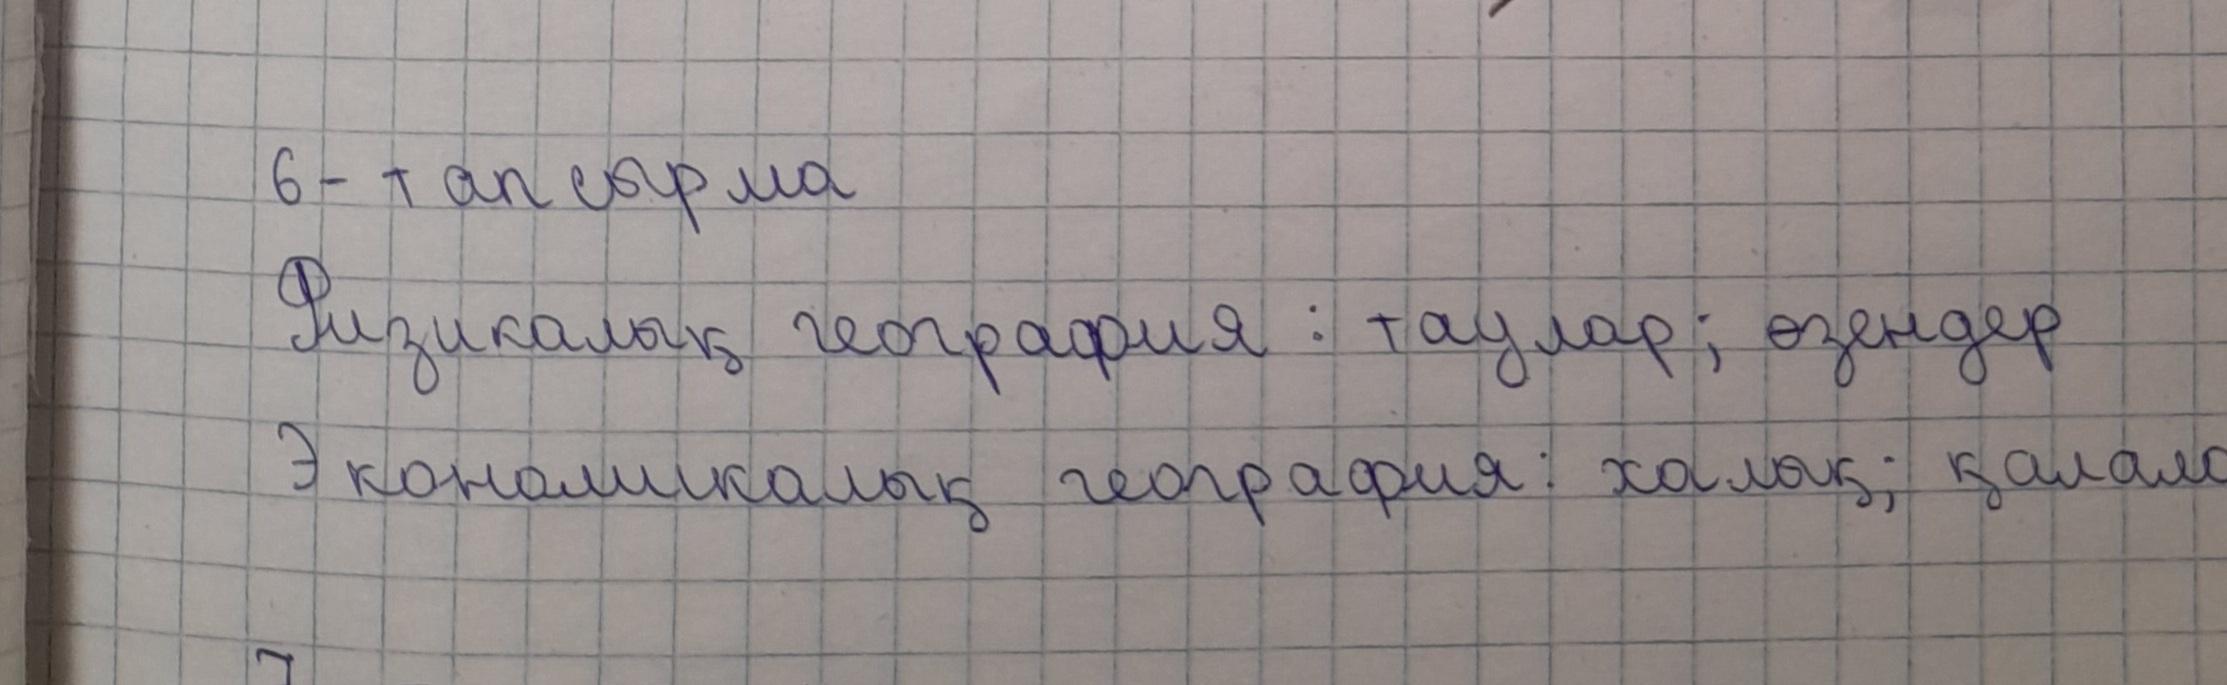 6-тапсырма
Физикалық география: таулар; өзендер
Экономикалық география: халық; қалала
7